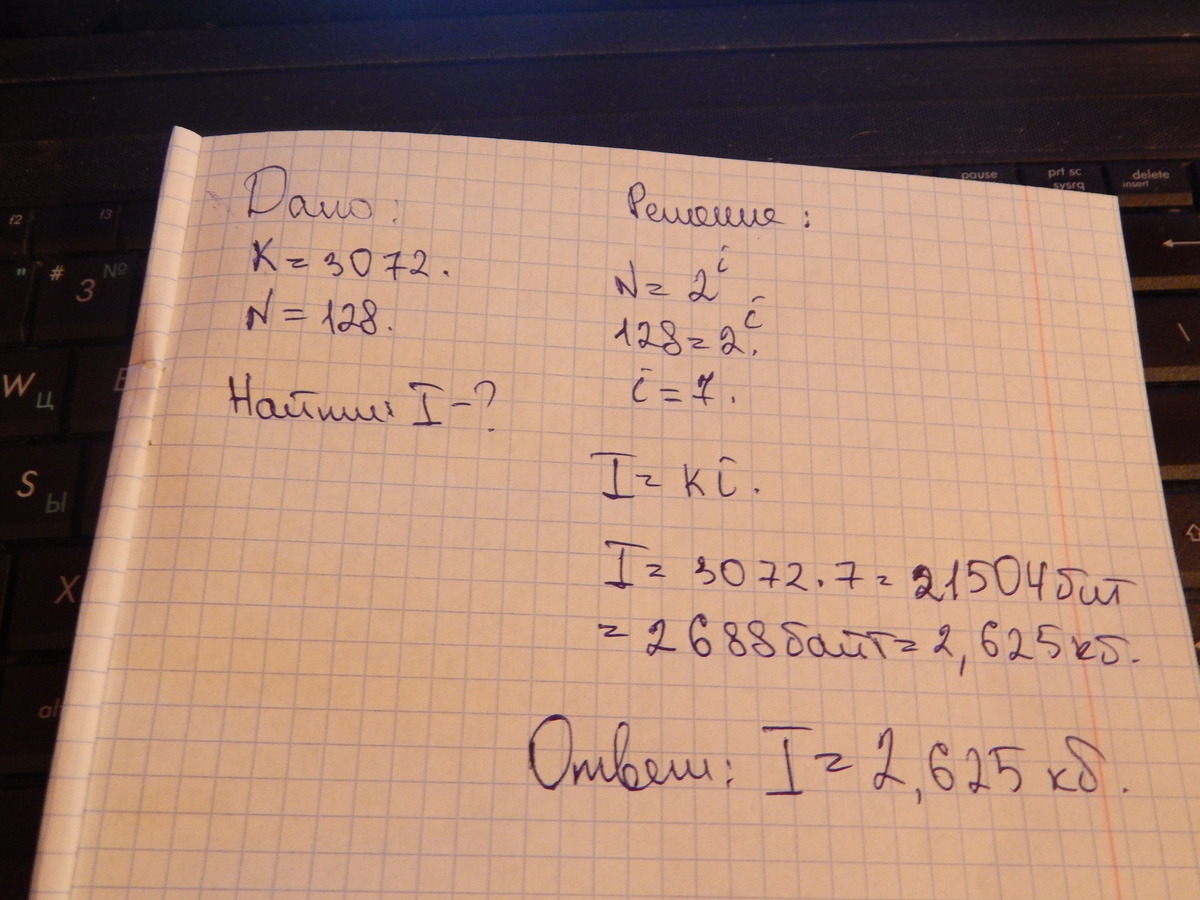 Дано:
K = 3072.
N = 128.
Найти: I - ?
Решение:
N = 2^i
128 = 2^i.
i = 7.
I = Ki.
I = 3072 · 7 = 21504 бит
= 2688 байт = 2,625 кб.
Ответ: I = 2,625 кб.
f2
f3
" # 3 №
W Ц
S Ы
X
pause
prt sc
sysrq
delete
insert
\